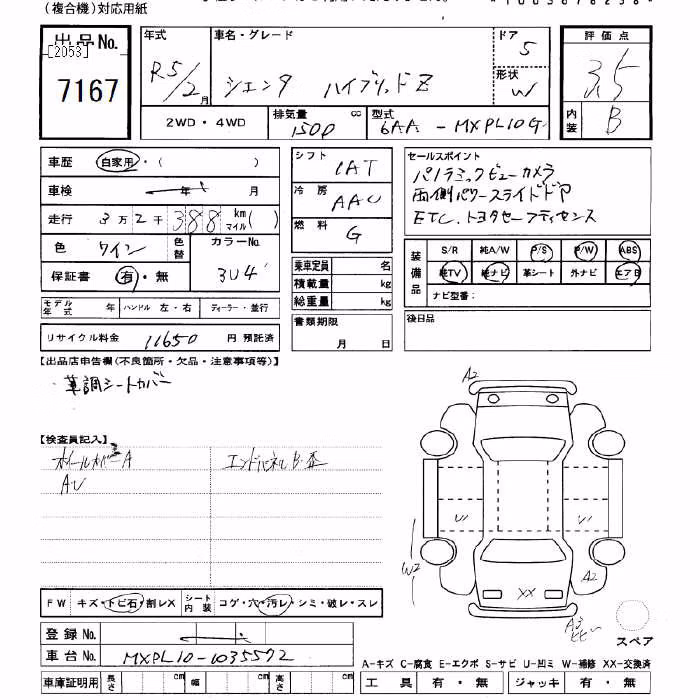 (複合機)対応用紙
出品No.
[2053]
7167
年式
R5/2月
車名・グレード
シエンタ ハイブリッドZ
ドア
5
形状
W
評価点
3.5
内装
B
2WD・4WD
排気量
1500 cc
型式
6AA-MXPL10G
車歴 自家用・( )
車検 年 月
走行 3万2千388 km マイル( )
色 ワイン 色替 カラーNo. 3U4
保証書 有・無
モデル年式 年 ハンドル 左・右 ディーラー・並行
リサイクル料金 11650 円 預託済
シフト IAT
冷房 AAC
燃料 G
乗車定員 名
積載量 kg
総重量 kg
書類期限
月 日
セールスポイント
パノラミックビューカメラ
両側パワースライドドア
ETC.トヨタセーフティセンス
装備品
S/R 純A/W P/S P/W ABS
純TV 純ナビ 革シート 外ナビ エアB
ナビ型番:
後日品
【出品店申告欄(不良箇所・欠品・注意事項等)】
・革調シートカバー
【検査員記入】
ホイールカバーA エンドパネルB・歪
AU
A2
U1
U1
W2
A2
XX
A3
スペア
FW キズ・トビ石・割レX シート内装 コゲ・穴・汚レ・シミ・破レ・スレ
登録No.
車台No. MXPL10-1035572
車庫証明用 長さ cm 幅 cm 高さ cm
A-キズ C-腐食 E-エクボ S-サビ U-凹ミ W-補修 XX-交換済
工具 有・無 ジャッキ 有・無